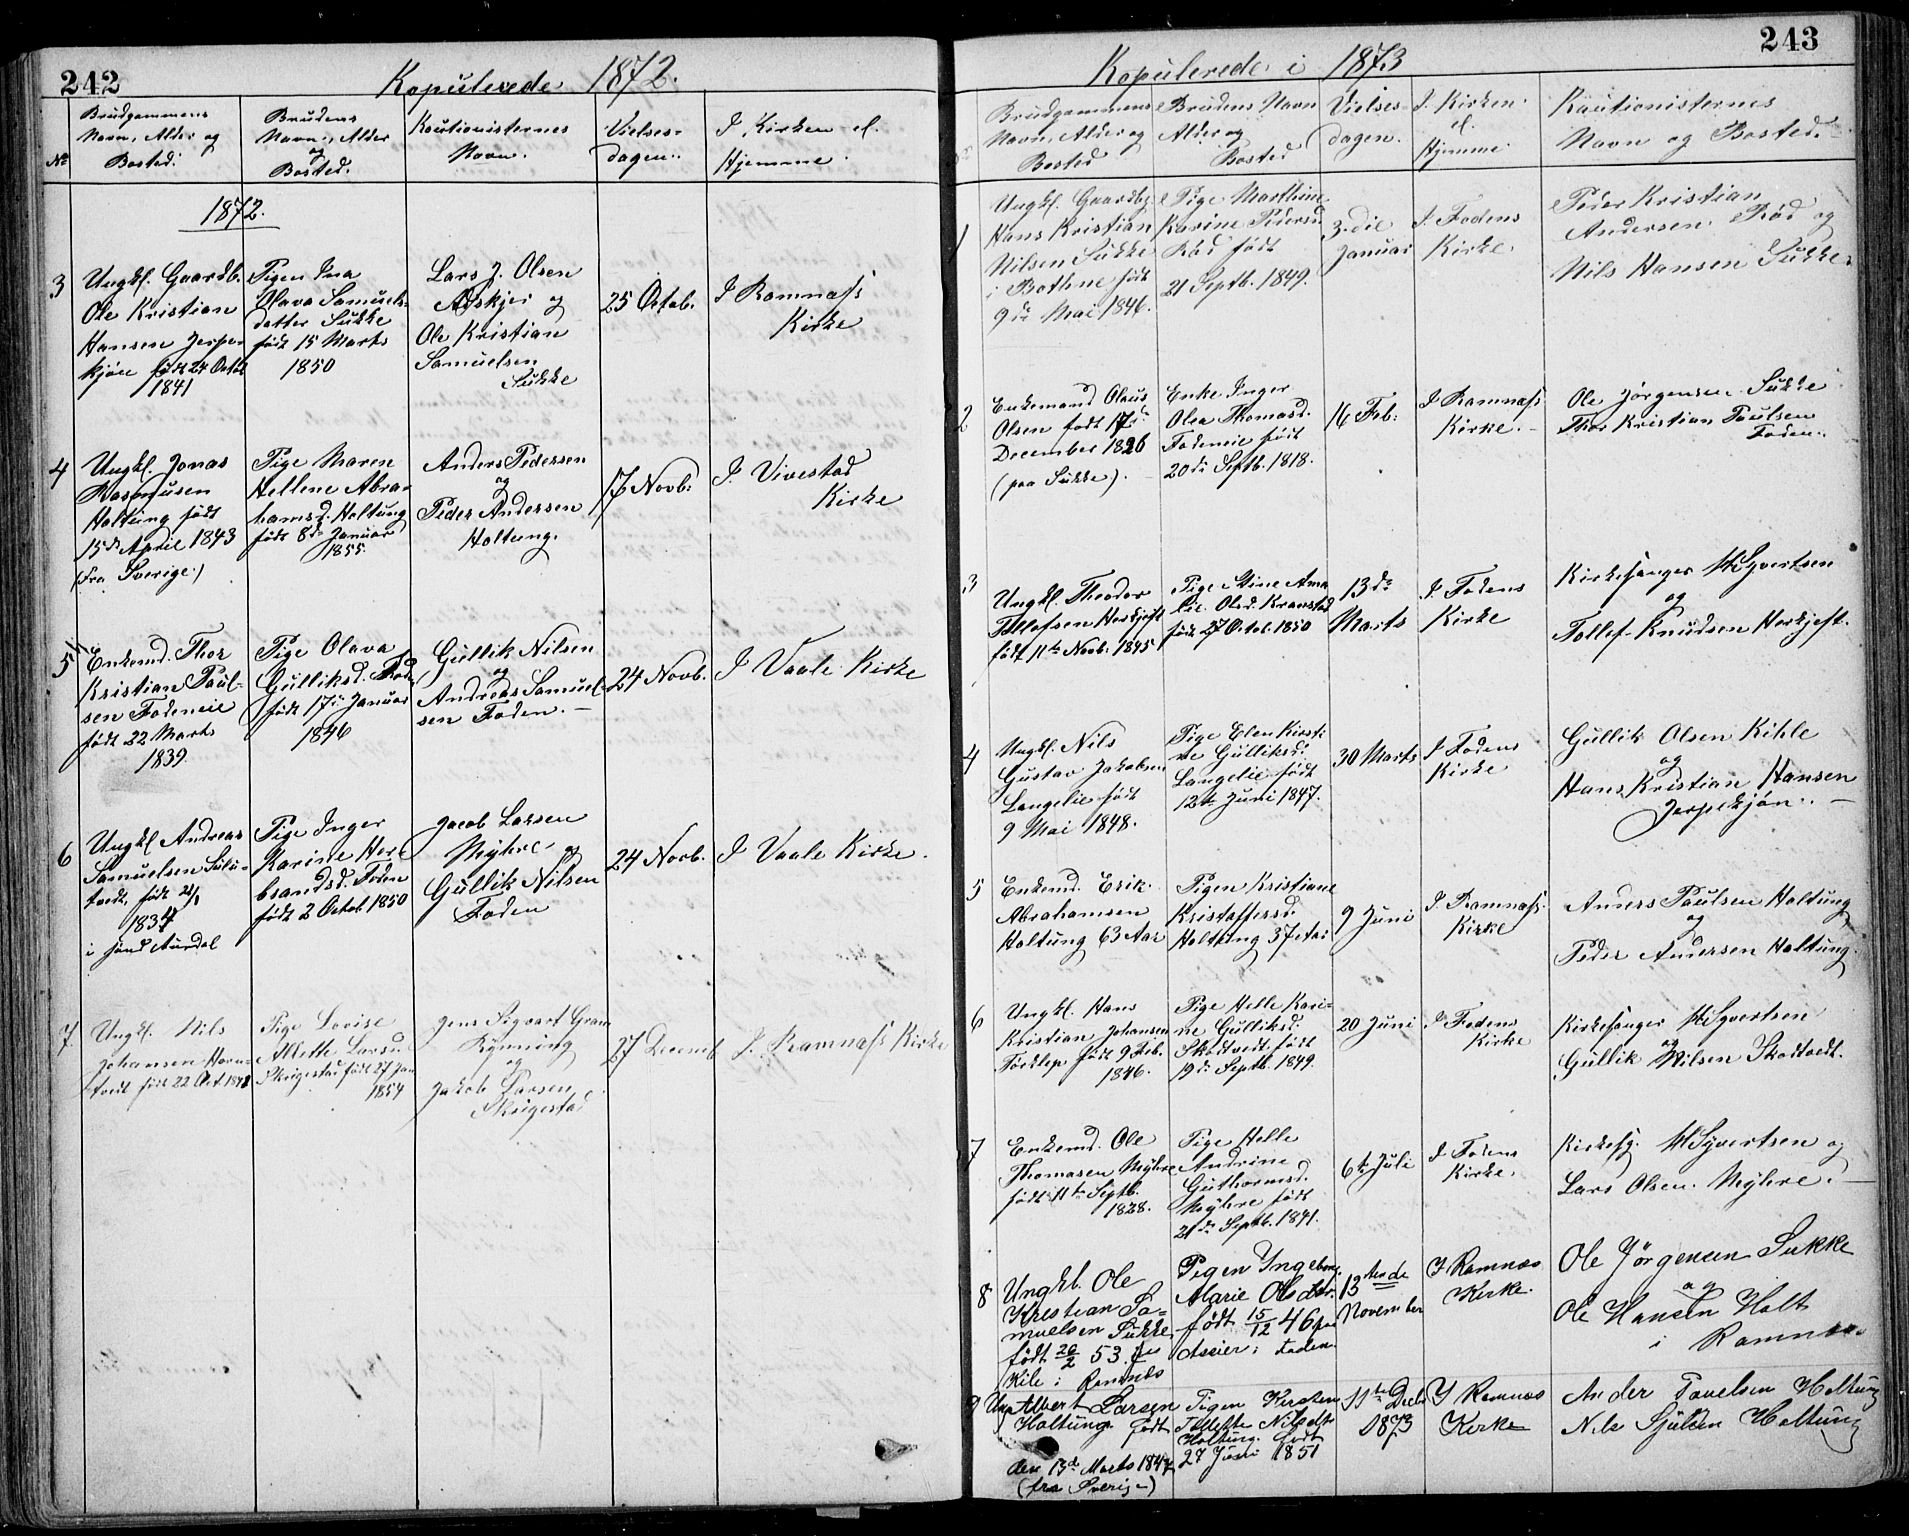 242
Kopulerede 1872.
No
Brudgommens
Navn, Alder og
Bosted.
Brudens
Navn, Alder
og
Bosted.
Kautionisternes
Navn.
Vielses-
dagen.
I Kirken el.
Hjemme.
1872.
3
Ungkl. Gaardb.
Ole Kristian
Hansen Jerpe-
kjøn født 24 Octob
1841
Pigen Ina
Olava Samuels-
datter Sukke
født 15 Marts
1850
Lars J. Olsen
Askjer og
Ole Kristian
Samuelsen
Sukke
25 Octob.
I Ramnæs
Kirke
4
Ungkl. Jonas
Rasmusen
Holtung født
15de April 1843
(Fra Sverige)
Pige Maren
Hellene Abra-
hamsd. Holtung
født 8de Januar
1855.
Anders Pedersen
og
Peder Andersen
Holtung.
17 Novb.
I Vivestad
Kirke
5
Enkemd. Thor
Kristian Paul-
sen Fodeneie
født 22 Marts
1839
Pige Olava
Gulliksd. Foden
født 17de Januar
1846
Gullik Nilsen
og
Andreas Samuel-
sen Foden.
24 Novb.
I Vaale Kirke
6
Ungkl Andreas
Samuelsen
født
1834
i Aurdal
Pige Inger
Karine Her-
brandsd. Foden
født 2 Octob 1850
Jacob Larsen
Myhre og
Gullik Nilsen
Foden
24 Novb.
I Vaale Kirke.
7
Ungkl. Nils
Johansen Horn-
tvedt født 22 Oct. 1848
Pige Lovise
Allette Larsd.
Skugestad født 27 Jan
1854
Jens Sigvart Gram
Rynning
og
Jakob Larsen
Skugestad
27 Decemb
I Ramnæs Kirke
243
Kopulerede i 1873
Brudgommens
Navn, Alder og
Bosted
Brudens Navn
Alder og
Bosted
Vielses-
dagen.
I Kirken
el.
Hjemme.
Kautionisternes
Navn og Bosted.
1
Ungkl. Gaardbg.
Hans Kristian
Nilsen Sukke
i Bothne født
9de Mai 1846.
Pige Marthine
Karine Pedersd.
Rød født
21 Septb. 1849.
3die
Januar
I Fodens
Kirke
Peder Kristian
Andersen Rød og
Nils Hansen Sukke.
2
Enkemand Olaus
Olsen født 17de
December 1826
(paa Sukke).
Enke Inger
Olea Thomasd.
Fodeneie født
20de Septb. 1818.
16 Feb.
I Ramnæs
Kirke.
Ole Jørgensen Sukke
Thor Kristian Paulsen
Foden.
3
Ungkl. Theodor
Tollefsen Horkjest
født 11te Novb. 1845
Pige Stine Ama-
lie Olsd. Kranstad
født 27 Octob. 1850
13de
Marts
I Fodens
Kirke
Kirkesanger M Syvertsen
og
Tollef Knudsen Horkjest.
4
Ungkl. Nils
Gustav Jakobsen
Langelie født
9 Mai 1848.
Pige Elen Kirsti-
ne Gulliksd.
Langelie født
12te Juni 1847.
30 Marts
I Fodens
Kirke
Gullik Olsen Kihle
og
Hans Kristian Hansen
Jerpekjøn.
5
Enkemd. Erik
Abrahamsen
Holtung 63 Aar
Pigen Kristiane
Kristoffersd.
Holtung 37 Aar
9 Juni
I Ramnæs
Kirke
Anders Paulsen Holtung
og
Peder Andersen Holtung.
6
Ungkl. Hans
Kristian Johansen
Førdlep født 9 Feb.
1846.
Pige Helle Kari-
ne Gulliksd.
Skodtvedt født
19de Septb. 1849.
20 Juni
I Fodens
Kirke
Kirkesanger M Syvertsen
og
Gullik Nilsen Skodtvedt.
7
Enkemd. Ole
Thomasen Myhre
født 11te Septb.
1828.
Pige Helle
Andrine
Guthormsd.
Myhre født
21de Septb. 1841.
6te Juli
I Fodens
Kirke.
Kirkesg. M Syvertsen og
Lars Olsen Myhre.
8
Ungkl. Ole
Khristian Sa-
muelsen Sukke
født 20/2 53. paa
Kile i Ramnæs
Pigen Ingeborg
Marie Olsdtr.
født 15/12 46 paa
Assier i Foden.
13tende
November
I Ramnæs
Kirke.
Ole Jørgensen Sukke
og
Ole Hansen Holt
i Ramnæs.
9
Ung Albert Larsen
Holtung født
den 13de Marts 1847
(fra Sverige)
Pigen Kirsten
Tollette Nilsdtr
Holtung født
27 Juni 1851
11te Decb.
1873
I Ramnæs
Kirke
Ander Pavelsen Holtung
Nils Holtung